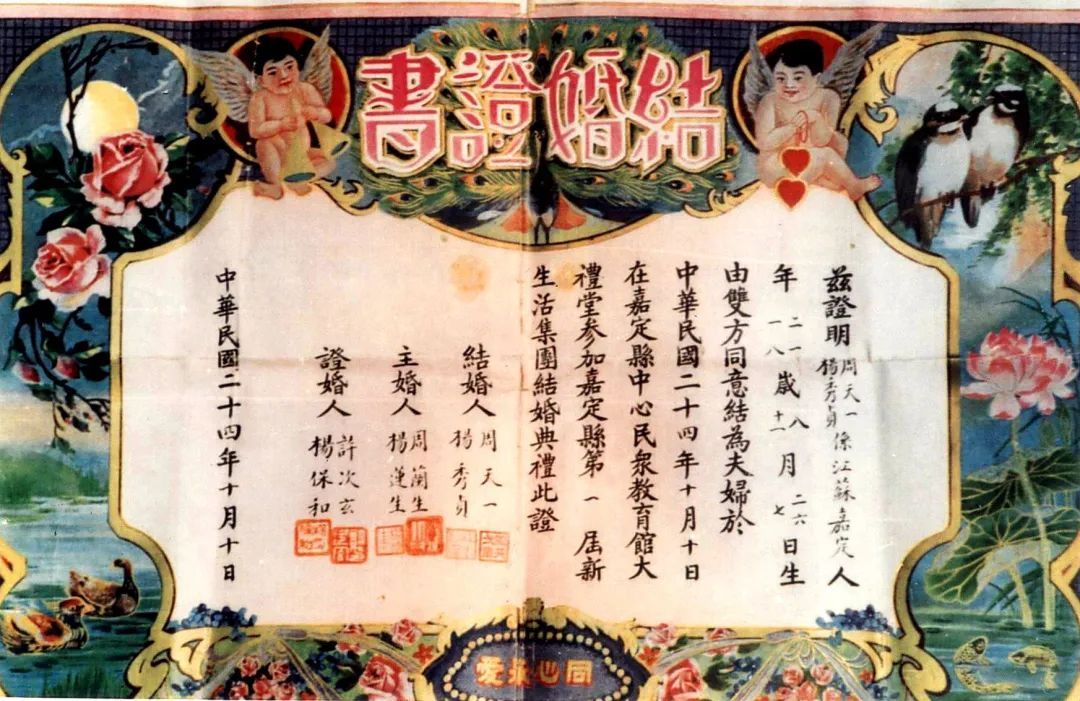 結婚證書
茲證明周天一楊秀貞係江蘇嘉定人
年二一一八歲八十一月二六七日生
由雙方同意結為夫婦於
中華民國二十四年十月十日
在嘉定縣中心民眾教育館大
禮堂參加嘉定縣第一屆新
生活集團結婚典禮此證
結婚人周天一楊秀貞
主婚人周蘭生楊蓮生
證婚人許次玄楊保和
中華民國二十四年十月十日
同心永愛